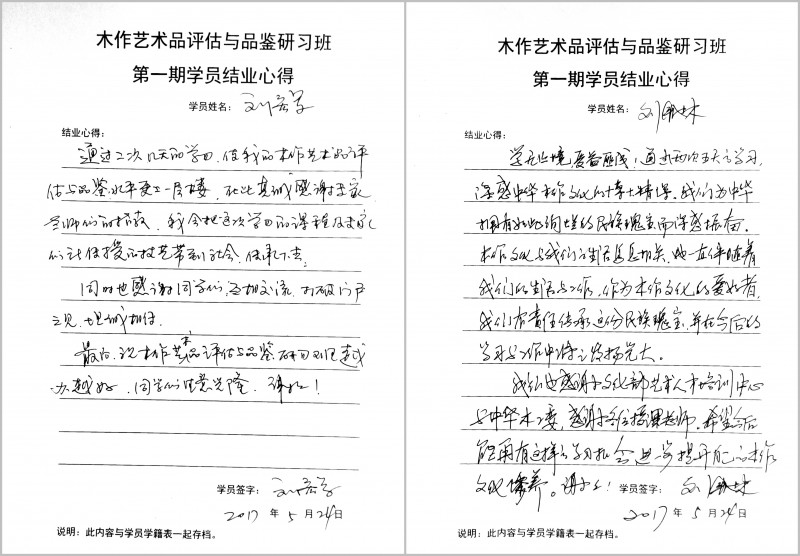 木作艺术品评估与品鉴研习班
第一期学员结业心得
学员姓名：
结业心得：
通过二次几天的学习，使我的木作艺术品评
估与品鉴水平更上一层楼，在此真诚感谢专家
老师们的授教，我会把这次学习的课程及专家
们社传授的技艺带到社会，传承下去。
同时也感谢同学们，互相交流，打破门户
之见，坦诚相待。
最后，祝木作艺术品评估与品鉴研习班越
办越好，同学们生意兴隆，谢谢！
学员签字：
2017 年 5 月 24 日
说明：此内容与学员学籍表一起存档。
木作艺术品评估与品鉴研习班
第一期学员结业心得
学员姓名：
结业心得：
学无止境，受益匪浅！通过两次五天之学习，
深感中华木作文化的博大精深，我们为中华
拥有如此的民族瑰宝而深感振奋。
木作文化与我们生活息息相关，她一直伴随着
我们的生活与工作，作为木作文化的爱好者，
我们有责任传承这份民族瑰宝，并在今后的
学习与工作中将之发扬光大。
我们也感谢文化部艺术人才培训中心
与中华木工委，感谢各位授课老师。希望今后
能再有这样的学习机会进一步提升自己的木作
文化修养。谢谢！学员签字：
2017 年 5 月 24 日
说明：此内容与学员学籍表一起存档。